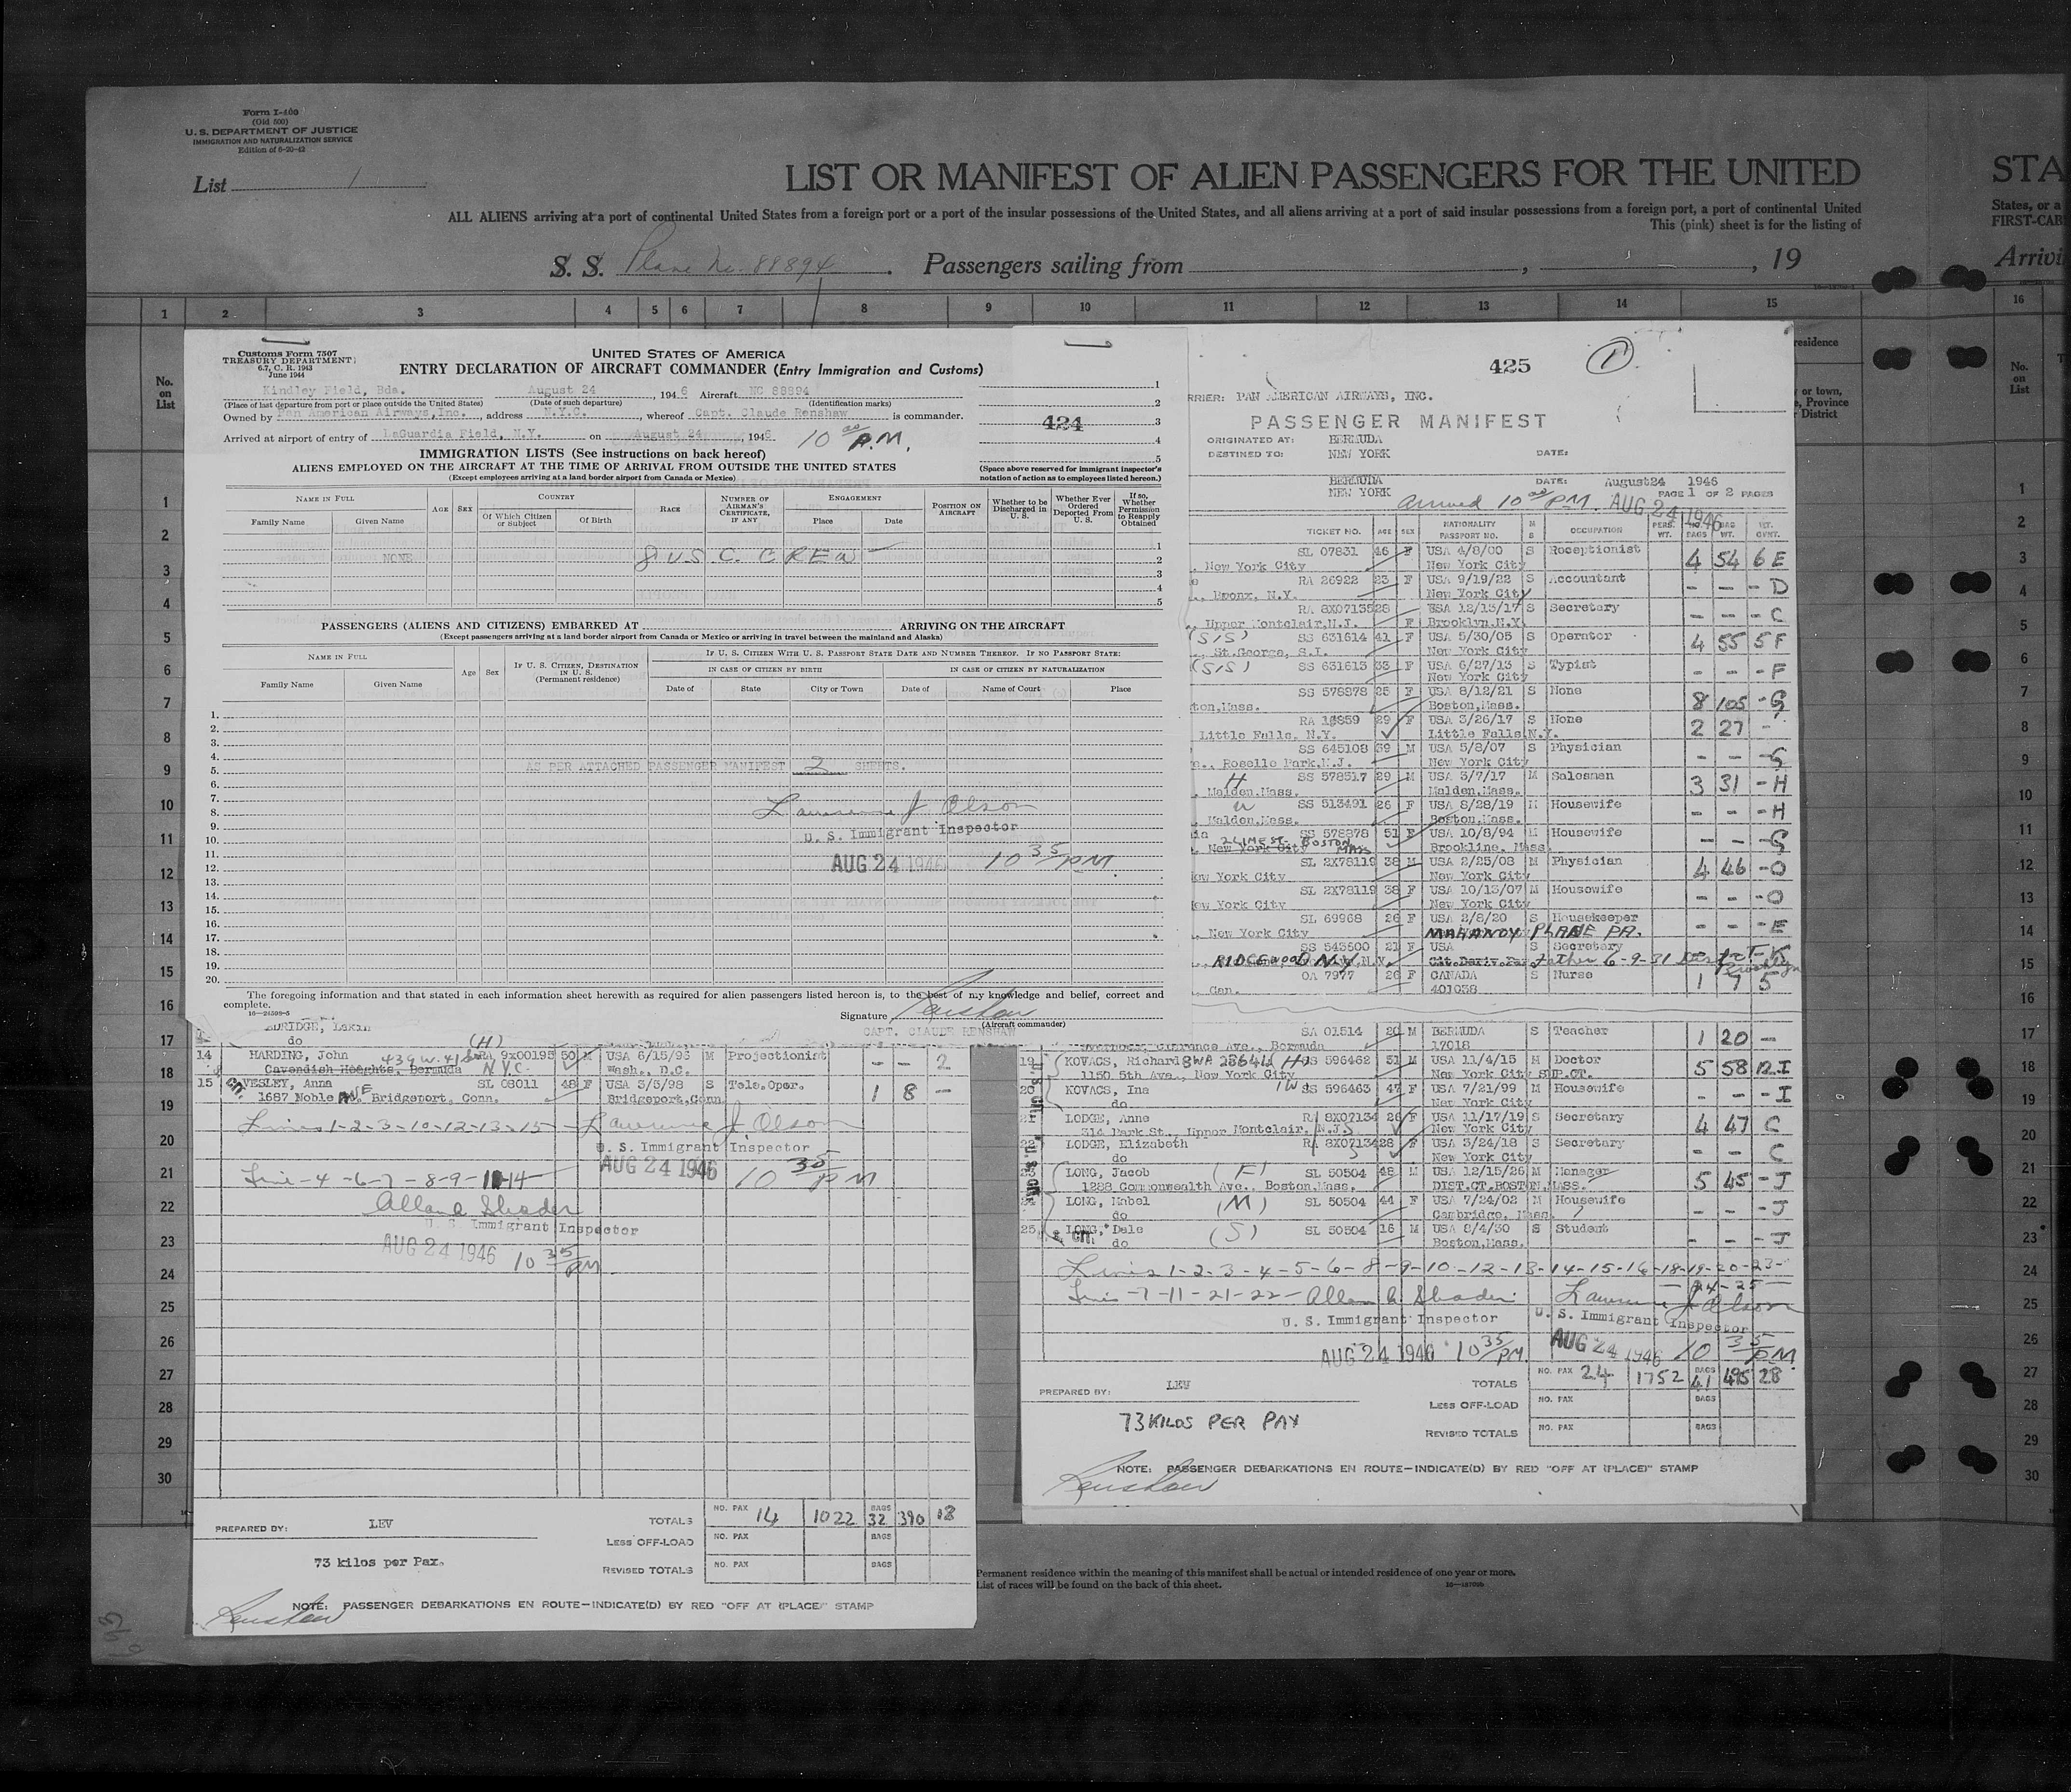 Form I-400
(Old 500)
U. S. DEPARTMENT OF JUSTICE
IMMIGRATION AND NATURALIZATION SERVICE
Edition of 6-20-42
List 1
LIST OR MANIFEST OF ALIEN PASSENGERS FOR THE UNITED
STA
ALL ALIENS arriving at a port of continental United States from a foreign port or a port of the insular possessions of the United States, and all aliens arriving at a port of said insular possessions from a foreign port, a port of continental United
States, or a
This (pink) sheet is for the listing of
FIRST-CAB
S. S. Plane No. 88894. Passengers sailing from , , 19
Arrivi
1 2 3 4 5 6 7 8 9 10 11 12 13 14 15 16
No. on List
1
2
3
4
5
6
7
8
9
10
11
12
13
14
15
16
17
18
19
20
21
22
23
24
25
26
27
28
29
30
Customs Form 7507
TREASURY DEPARTMENT
6.7, C. R. 1943
June 1944
UNITED STATES OF AMERICA
ENTRY DECLARATION OF AIRCRAFT COMMANDER (Entry Immigration and Customs)
Kindley Field, Bda. August 24, 1946 Aircraft NC 88894
(Place of last departure from port or place outside the United States) (Date of such departure) (Identification marks)
Owned by Pan American Airways, Inc., address N.Y.C., whereof Capt. Claude Renshaw is commander.
Arrived at airport of entry of LaGuardia Field, N.Y. on August 24, 1946 10 00 P.M.
1
2
3
4
5
424
IMMIGRATION LISTS (See instructions on back hereof)
ALIENS EMPLOYED ON THE AIRCRAFT AT THE TIME OF ARRIVAL FROM OUTSIDE THE UNITED STATES
(Except employees arriving at a land border airport from Canada or Mexico)
(Space above reserved for immigrant inspector's notation of action as to employees listed hereon.)
NAME IN FULL AGE SEX COUNTRY RACE NUMBER OF AIRMAN'S CERTIFICATE, IF ANY ENGAGEMENT POSITION ON AIRCRAFT Whether to be Discharged in U. S. Whether Ever Ordered Deported From U. S. If so, Whether Permission to Reapply Obtained
Family Name Given Name Of Which Citizen or Subject Of Birth Place Date
NONE 8 U.S.C. CREW
1
2
3
4
5
PASSENGERS (ALIENS AND CITIZENS) EMBARKED AT ARRIVING ON THE AIRCRAFT
(Except passengers arriving at a land border airport from Canada or Mexico or arriving in travel between the mainland and Alaska)
NAME IN FULL Age Sex IF U. S. CITIZEN, DESTINATION IN U. S. (Permanent residence) IF U. S. CITIZEN WITH U. S. PASSPORT STATE DATE AND NUMBER THEREOF. IF NO PASSPORT STATE:
IN CASE OF CITIZEN BY BIRTH IN CASE OF CITIZEN BY NATURALIZATION
Family Name Given Name Date of State City or Town Date of Name of Court Place
1.
2.
3.
4.
5. AS PER ATTACHED PASSENGER MANIFEST 2 SHEETS.
6.
7.
8. Lawrence J. Olson
9. U. S. Immigrant Inspector
10.
11. AUG 24 1946 10 35 PM
12.
13.
14.
15.
16.
17.
18.
19.
20.
The foregoing information and that stated in each information sheet herewith as required for alien passengers listed hereon is, to the best of my knowledge and belief, correct and complete.
16-24599-5
Signature Renshaw
(Aircraft commander)
CAPT. CLAUDE RENSHAW
425 1
RRIER: PAN AMERICAN AIRWAYS, INC.
PASSENGER MANIFEST
ORIGINATED AT: BERMUDA
DESTINED TO: NEW YORK DATE:
BERMUDA DATE: August 24 1946
NEW YORK PAGE 1 OF 2 PAGES
arrived 10 00 P.M. AUG 24 1946
TICKET NO. AGE SEX NATIONALITY PASSPORT NO. M S OCCUPATION PERS. WT. NO. BAGS BAG WT.
SL 07831 46 F USA 4/8/00 S Receptionist 4 54 6 E
, New York City New York City
RA 26922 23 F USA 9/19/22 S Accountant - - - D
., Bronx, N.Y. New York City
RA 8X07135 28 USA 12/13/17 S Secretary - - - C
, Upper Montclair, N.J. F Brooklyn N.Y.
(SIS) SS 631614 41 F USA 5/30/05 S Operator 4 55 5 F
, St.George, S.I. New York City
(SIS) SS 631613 33 F USA 6/27/13 S Typist - - - F
New York City
SS 578878 25 F USA 8/12/21 S None 8 105 - G
ton, Mass. Boston, Mass.
RA 29 F USA 3/26/17 S None 2 27 -
Little Falls, N.Y. Little Falls N.Y.
SS 645108 39 M USA 5/8/07 S Physician - - - G
., Roselle Park, N.J. New York City
H SS 578517 29 M USA 3/7/17 M Salesman 3 31 - H
. Malden, Mass. Malden, Mass.
SS 513491 26 F USA 8/28/19 M Housewife - - - H
. Malden, Mass. Boston, Mass.
SS 578878 51 F USA 10/8/94 M Housewife - - - G
, New York City BOSTON MASS Brookline, Mass.
SL 2X78119 38 M USA 2/25/08 M Physician 4 46 - O
ew York City New York City
SL 2X78119 38 F USA 10/13/07 M Housewife - - - O
ew York City New York City
SL 69968 26 F USA 2/8/20 S Housekeeper - - - E
, New York City MAHANOY PLANE PA.
SS 543500 21 F USA S Secretary - - - K
RIDGEWOOD N.Y. father 6-9-31
OA 7977 26 F CANADA S Nurse 1 7 5
, Can. 401038
SA 01514 20 M BERMUDA S Teacher 1 20 -
Ave., Bermuda 17018
19 KOVACS, Richard H SS 596462 51 M USA 11/4/15 M Doctor 5 58 12. I
1150 5th Ave., New York City New York City SUP. CT.
20 KOVACS, Ina W SS 596463 47 F USA 7/21/99 M Housewife - - - I
do New York City
21 LODGE, Anne RA 8X07134 26 F USA 11/17/19 S Secretary 4 47 C
314 Park St., Upper Montclair, N.J. New York City
22 LODGE, Elizabeth RA 8X07134 28 F USA 3/24/18 S Secretary - - C
do New York City
23 LONG, Jacob (F) SL 50504 48 M USA 12/15/26 M Manager 5 45 - J
1288 Commonwealth Ave., Boston, Mass. DIST. CT. BOSTON, MASS.
24 LONG, Mabel (M) SL 50504 44 F USA 7/24/02 M Housewife - - - J
do Cambridge, Mass.
25 LONG, Dale (S) SL 50504 16 M USA 8/4/30 S Student - - - J
do Boston, Mass.
Lines 1-2-3-4-5-6-8-9-10-12-13-14-15-16-18-19-20-23-
24-25-
Lines -7-11-21-22- Allan Shader Lawrence J. Olson
U. S. Immigrant Inspector U. S. Immigrant Inspector
AUG 24 1946 10 35 PM AUG 24 1946 10 35 PM
PREPARED BY: LEV TOTALS NO. PAX 24 1752 BAGS 41 495 28
LESS OFF-LOAD NO. PAX BAGS
73 KILOS PER PAX REVISED TOTALS NO. PAX BAGS
NOTE: PASSENGER DEBARKATIONS EN ROUTE-INDICATE(D) BY RED "OFF AT (PLACE)" STAMP
Renshaw
do (H)
14 HARDING, John 439 W. 41 St. RA 9x00195 50 M USA 6/15/96 M Projectionist - - 2
Cavendish Heights, Bermuda N.Y.C. Wash., D.C.
15 VESLEY, Anna SL 08011 48 F USA 3/5/98 S Tele. Oper. 1 8 -
1687 Noble AVE Bridgeport, Conn. Bridgeport, Conn.
Lines 1-2-3-10-12-13-15- Lawrence J. Olson
U. S. Immigrant Inspector
AUG 24 1946 10 35 PM
Line -4-6-7-8-9-11-14-
Allan Shader
U. S. Immigrant Inspector
AUG 24 1946 10 35 PM
PREPARED BY: LEV TOTALS NO. PAX 14 1022 BAGS 32 390 18
LESS OFF-LOAD NO. PAX BAGS
73 kilos per Pax. REVISED TOTALS NO. PAX BAGS
NOTE: PASSENGER DEBARKATIONS EN ROUTE-INDICATE(D) BY RED "OFF AT (PLACE)" STAMP
Renshaw
Permanent residence within the meaning of this manifest shall be actual or intended residence of one year or more.
List of races will be found on the back of this sheet.